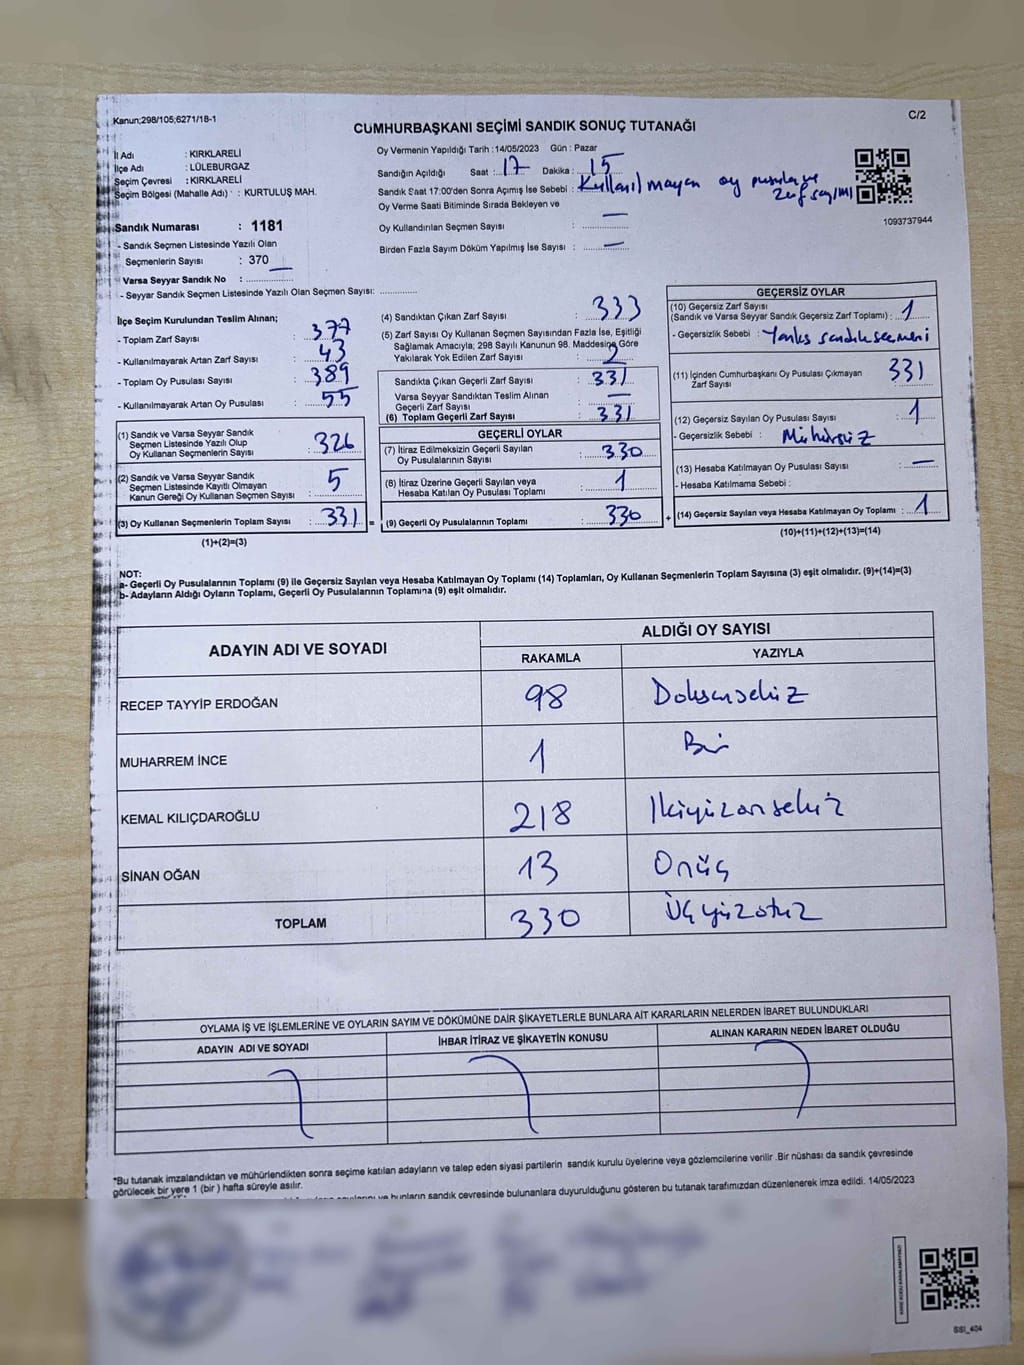 Kanun;298/105;6271/18-1
C/2
CUMHURBAŞKANI SEÇİMİ SANDIK SONUÇ TUTANAĞI
İl Adı : KIRKLARELİ
İlçe Adı : LÜLEBURGAZ
Seçim Çevresi : KIRKLARELİ
Seçim Bölgesi (Mahalle Adı) : KURTULUŞ MAH.
Sandık Numarası : 1181
- Sandık Seçmen Listesinde Yazılı Olan
Seçmenlerin Sayısı : 370
Varsa Seyyar Sandık No : —
- Seyyar Sandık Seçmen Listesinde Yazılı Olan Seçmen Sayısı: ..............
Oy Vermenin Yapıldığı Tarih :14/05/2023 Gün : Pazar
Sandığın Açıldığı Saat : 17 Dakika : 15
Sandık Saat 17:00'den Sonra Açımış İse Sebebi : Kullanılmayan oy pusula ve
zarf sayımı
Oy Verme Saati Bitiminde Sırada Bekleyen ve
Oy Kullandırılan Seçmen Sayısı : —
Birden Fazla Sayım Döküm Yapılmış İse Sayısı : —
1093737944
İlçe Seçim Kurulundan Teslim Alınan;
- Toplam Zarf Sayısı : 377
- Kullanılmayarak Artan Zarf Sayısı : 43
- Toplam Oy Pusulası Sayısı : 389
- Kullanılmayarak Artan Oy Pusulası : 55
(1) Sandık ve Varsa Seyyar Sandık
Seçmen Listesinde Yazılı Olup
Oy Kullanan Seçmenlerin Sayısı : 326
(2) Sandık ve Varsa Seyyar Sandık
Seçmen Listesinde Kayıtlı Olmayan
Kanun Gereği Oy Kullanan Seçmen Sayısı : 5
(3) Oy Kullanan Seçmenlerin Toplam Sayısı : 331 =
(1)+(2)=(3)
(4) Sandıktan Çıkan Zarf Sayısı : 333
(5) Zarf Sayısı Oy Kullanan Seçmen Sayısından Fazla İse, Eşitliği
Sağlamak Amacıyla; 298 Sayılı Kanunun 98. Maddesine Göre
Yakılarak Yok Edilen Zarf Sayısı : 2
Sandıkta Çıkan Geçerli Zarf Sayısı : 331
Varsa Seyyar Sandıktan Teslim Alınan
Geçerli Zarf Sayısı : —
(6) Toplam Geçerli Zarf Sayısı : 331
GEÇERLİ OYLAR
(7) İtiraz Edilmeksizin Geçerli Sayılan
Oy Pusulalarının Sayısı : 330
(8) İtiraz Üzerine Geçerli Sayılan veya
Hesaba Katılan Oy Pusulası Toplamı : 1
(9) Geçerli Oy Pusulalarının Toplamı : 330 +
GEÇERSİZ OYLAR
(10) Geçersiz Zarf Sayısı
(Sandık ve Varsa Seyyar Sandık Geçersiz Zarf Toplamı) : 1
- Geçersizlik Sebebi : Yanlış sandık seçmeni
(11) İçinden Cumhurbaşkanı Oy Pusulası Çıkmayan
Zarf Sayısı : 331
(12) Geçersiz Sayılan Oy Pusulası Sayısı : 1
- Geçersizlik Sebebi : Mühürsüz
(13) Hesaba Katılmayan Oy Pusulası Sayısı : —
- Hesaba Katılmama Sebebi :
(14) Geçersiz Sayılan veya Hesaba Katılmayan Oy Toplamı : 1
(10)+(11)+(12)+(13)=(14)
NOT:
a- Geçerli Oy Pusulalarının Toplamı (9) ile Geçersiz Sayılan veya Hesaba Katılmayan Oy Toplamı (14) Toplamları, Oy Kullanan Seçmenlerin Toplam Sayısına (3) eşit olmalıdır. (9)+(14)=(3)
b- Adayların Aldığı Oyların Toplamı, Geçerli Oy Pusulalarının Toplamına (9) eşit olmalıdır.
ADAYIN ADI VE SOYADI ALDIĞI OY SAYISI
RAKAMLA YAZIYLA
RECEP TAYYİP ERDOĞAN 98 Doksansekiz
MUHARREM İNCE 1 Bir
KEMAL KILIÇDAROĞLU 218 İkiyüzonsekiz
SİNAN OĞAN 13 Onüç
TOPLAM 330 Üçyüzotuz
OYLAMA İŞ VE İŞLEMLERİNE VE OYLARIN SAYIM VE DÖKÜMÜNE DAİR ŞİKAYETLERLE BUNLARA AİT KARARLARIN NELERDEN İBARET BULUNDUKLARI
ADAYIN ADI VE SOYADI İHBAR İTİRAZ VE ŞİKAYETİN KONUSU ALINAN KARARIN NEDEN İBARET OLDUĞU
*Bu tutanak imzalandıktan ve mühürlendikten sonra seçime katılan adayların ve talep eden siyasi partilerin sandık kurulu üyelerine veya gözlemcilerine verilir .Bir nüshası da sandık çevresinde
görülecek bir yere 1 (bir ) hafta süreyle asılır.
ve bunların sandık çevresinde bulunanlara duyurulduğunu gösteren bu tutanak tarafımızdan düzenlenerek imza edildi. 14/05/2023
SSI_404